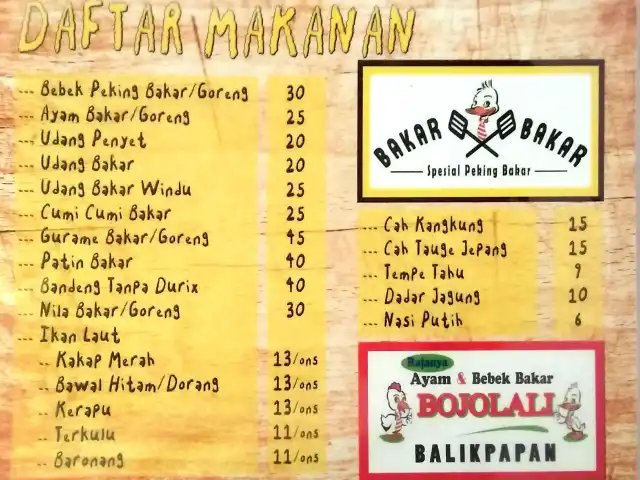 DAFTAR MAKANAN
--- Bebek Peking Bakar/Goreng 30
--- Ayam Bakar/Goreng 25
--- Udang Penyet 20
--- Udang Bakar 20
--- Udang Bakar Windu 25
--- Cumi Cumi Bakar 25
--- Gurame Bakar/Goreng 45
--- Patin Bakar 40
--- Bandeng Tanpa Durix 40
--- Nila Bakar/Goreng 30
--- Ikan Laut
-- Kakap Merah 13/ons
-- Bawal Hitam/Dorang 13/ons
-- Kerapu 13/ons
-- Terkulu 11/ons
-- Baronang 11/ons
BAKAR BAKAR
Spesial Peking Bakar
--- Cah Kangkung 15
--- Cah Tauge Jepang 15
--- Tempe Tahu 9
--- Dadar Jagung 10
--- Nasi Putih 6
Rajanya
Ayam & Bebek Bakar
BOJOLALI
BALIKPAPAN